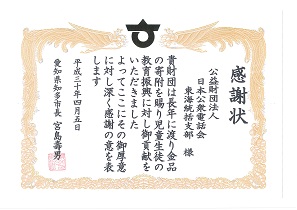 感謝状
公益財団法人
日本公衆電話会
東海統括支部 様
貴財団は長年に渡り金品
の寄附を賜り児童生徒の
教育振興に対し御貢献を
いただきました
よってここにその御厚意
に対し深く感謝の意を表
します
平成三十年四月五日
愛知県知多市長 宮島壽男